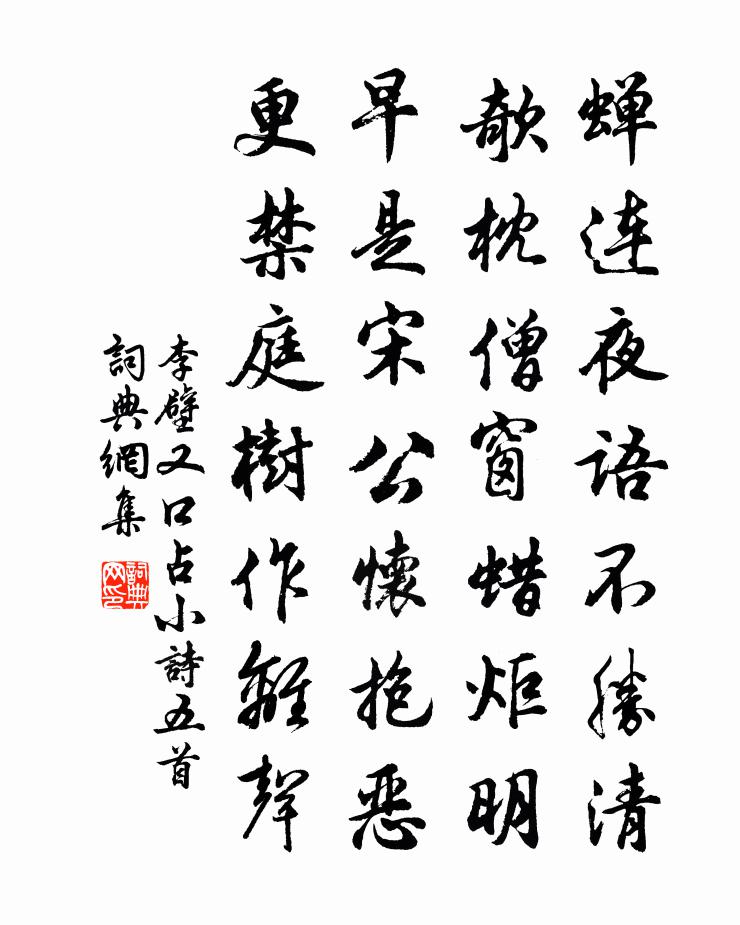 蝉连夜语不勝清
欹枕僧窗蜡炬明
早是宋公懷抱惡
更禁庭樹作離聲
李壁又口占小詩五首
詞典網集
詞典网印